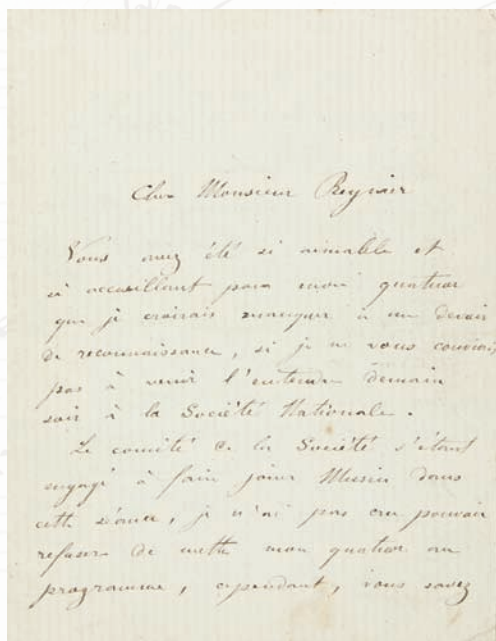 Cher Monsieur Reynier
Vous avez été si aimable et
si accueillant pour mon quatuor
que je croirais manquer à un devoir
de reconnaissance, si je ne vous conviais
pas à venir l'entendre demain
soir à la Société Nationale.
Le comité de la Société s'étant
engagé à faire jouer Musin dans
cette séance, je n'ai pas cru pouvoir
refuser de mettre mon quatuor au
programme, cependant, vous savez